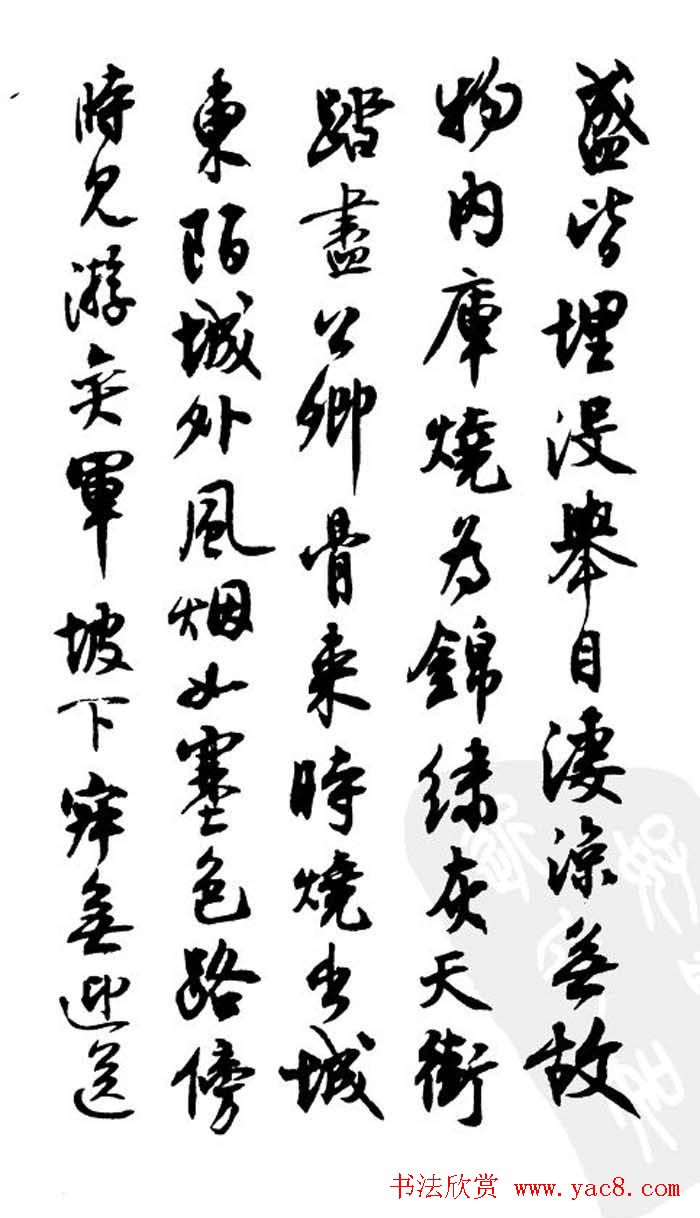 盛皆埋没舉目淒涼無故
物内庫燒為錦繡灰天街
踏盡公卿骨來時燒出城
東陌城外風烟如塞色路傍
時見游奕軍坡下寂無迎送
书法欣赏 www.yac8.com